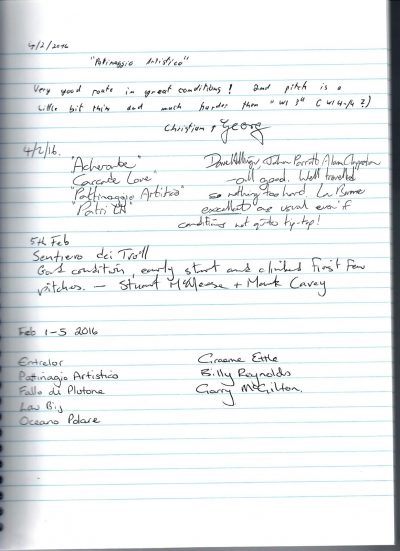 4/2/2016
"Pattinaggio Artistico"
Very good route in great conditions! 2nd pitch is a
little bit thin and much harder then "WI 3" (WI 4-/4?)
Christian & Georg
4/2/16.
"Acherante" Dave Hollinger, John Parrott Alan
"Cascade Love" - all good. Well travelled
"Pattinaggio Artistico" so nothing too hard. La Barme
"Patri" excellent as usual even if
conditions not quite tip-top!
5th Feb
Sentiero dei Troll
Good condition, early start and climbed first few
pitches. - Stuart McAleese + Mark Carey
Feb 1-5 2016
Entrelor Graeme Ettle
Patinagio Artistico Billy Reynolds
Fallo di Plutone Garry McGilton.
Lau Bij
Oceano Polare